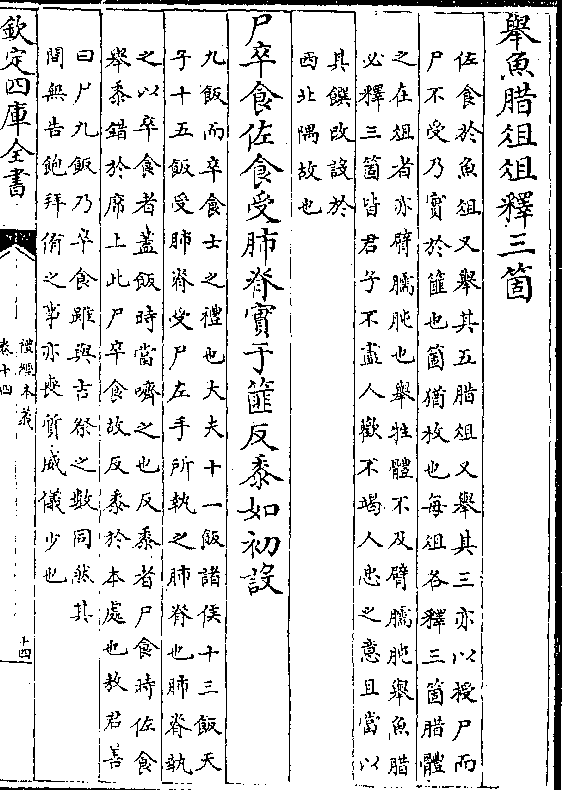 舉魚腊俎俎釋三箇
佐食於魚俎又舉其五腊俎又舉其三亦以授尸而
尸不受乃實於篚也箇猶枚也每俎各釋三箇腊體
之在俎者亦臂臑肫也舉牲體不及臂臑肫舉魚腊
必釋三箇皆君子不盡人歡不竭人忠之意且當以
其饌改設於
西北隅故也
尸卒食佐食受肺脊實于篚反黍如初設
九飯而卒食士之禮也大夫十一飯諸侯十三飯天
子十五飯受肺脊受尸左手所執之肺脊也肺脊執
之以卒食者蓋飯時當嚌之也反黍者尸食時佐食
舉黍錯於席上此尸卒食故反黍於本處也敖君善
曰尸九飯乃卒食雖與吉祭之數同然其
間無告飽拜侑之事亦喪質威儀少也
欽定四庫全書
禮經本義
卷十四
十四